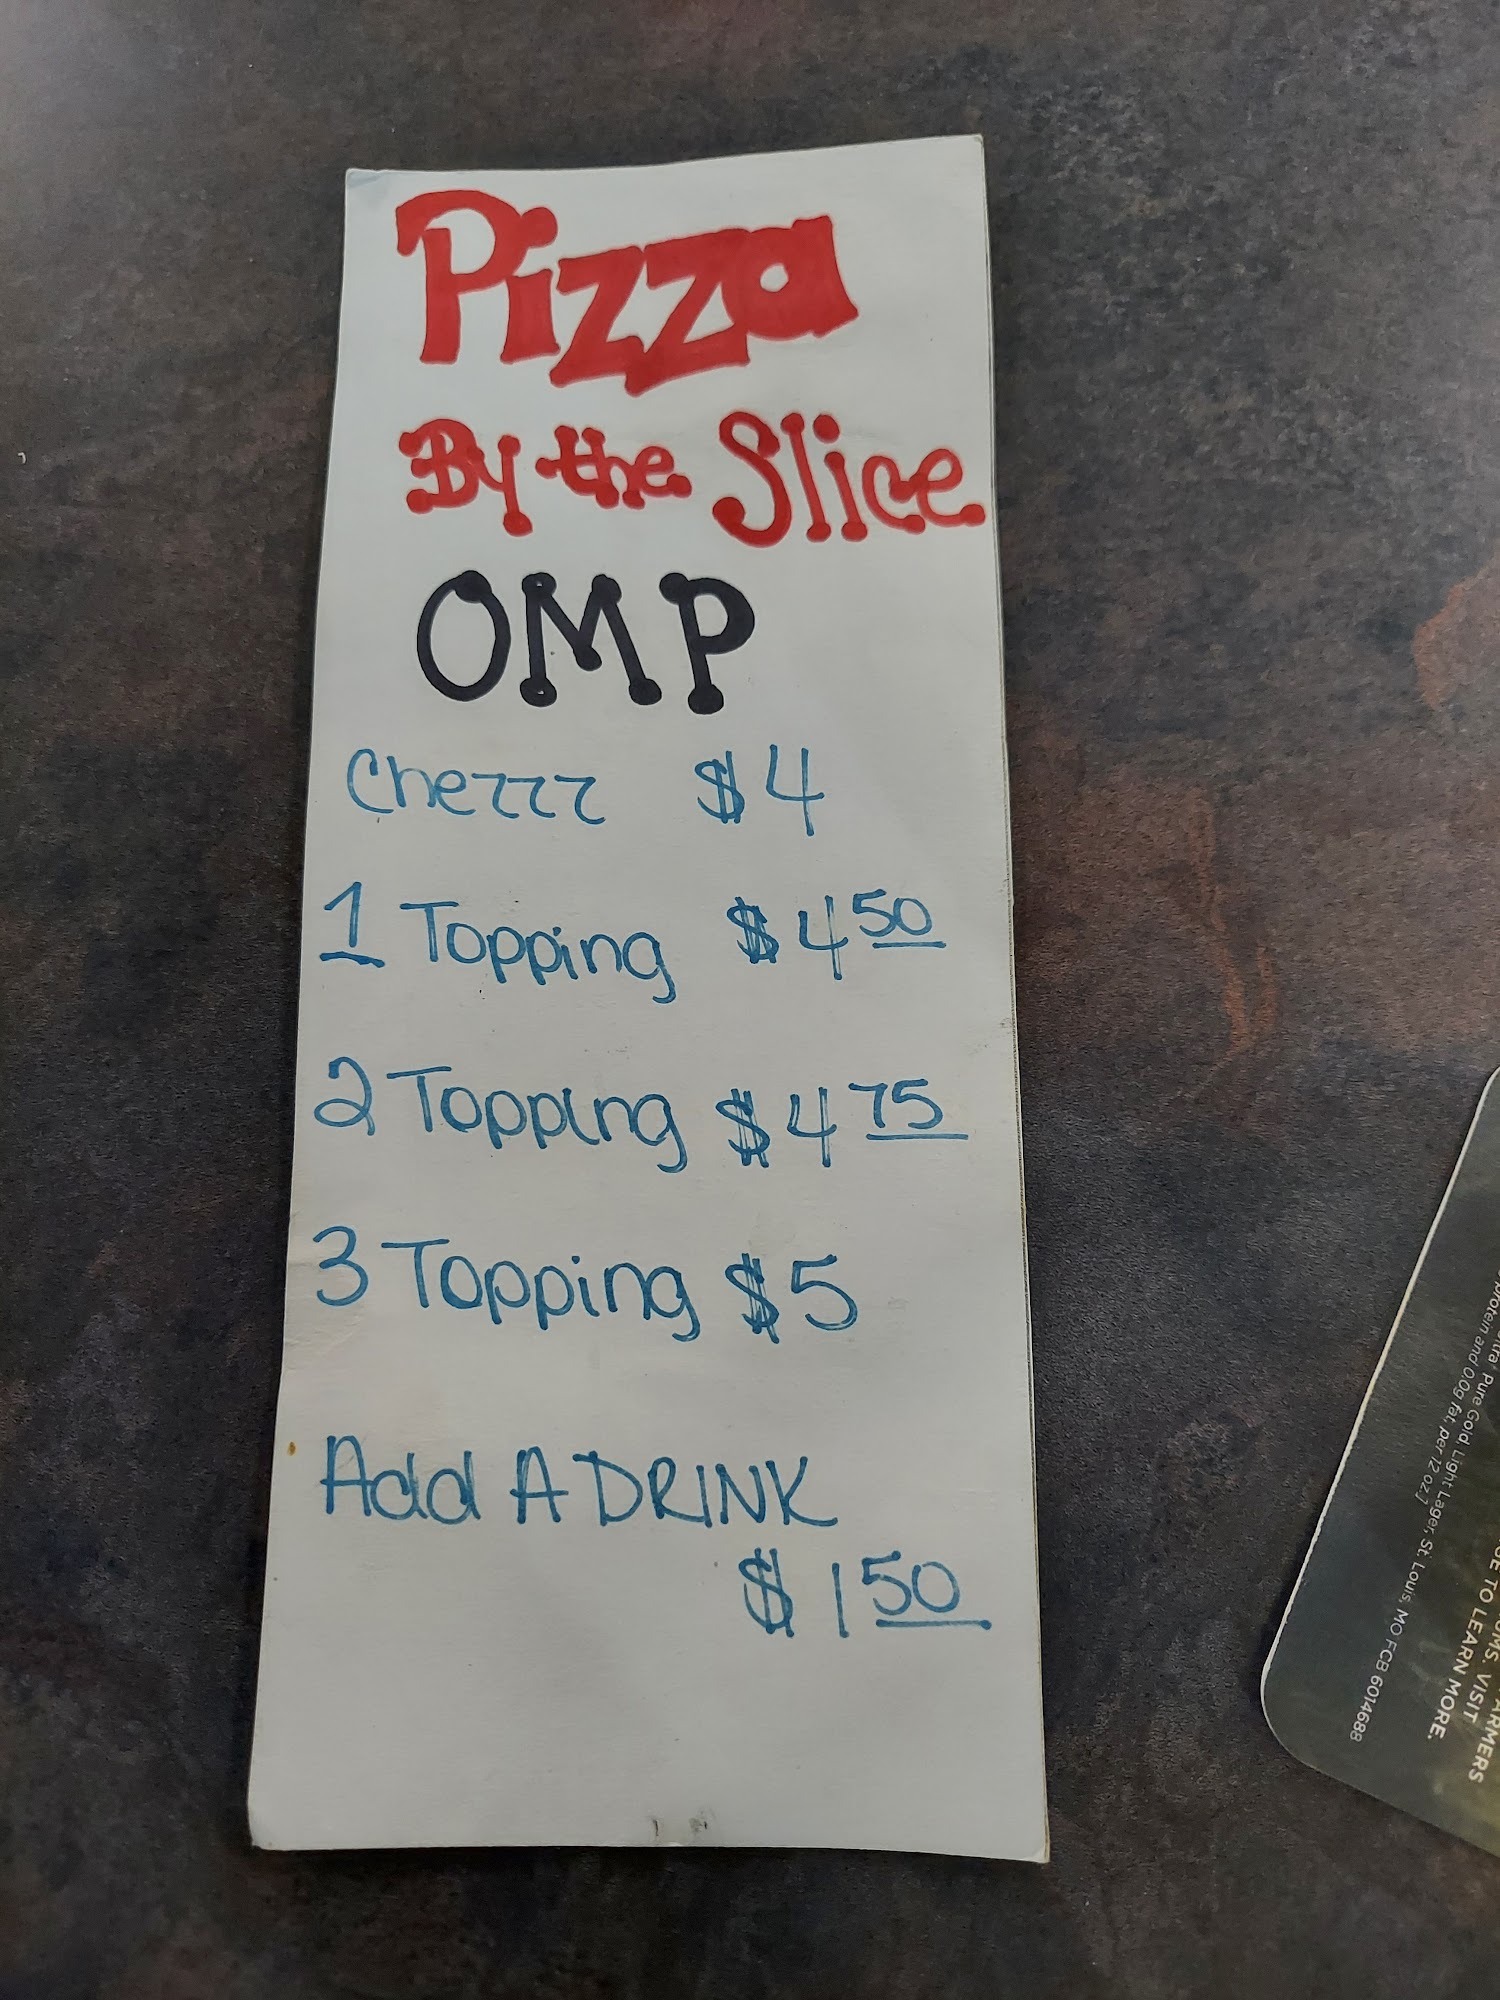 Pizza
By the Slice
OMP
Chezzz $4
1 Topping $4 50
2 Topping $4 75
3 Topping $5
Add A DRINK
$1 50
Pure Gold Light Lager, St. Louis, MO FCB 6014688
protein and 0.0g fat, per 12 oz.]
VISIT
TO LEARN MORE.